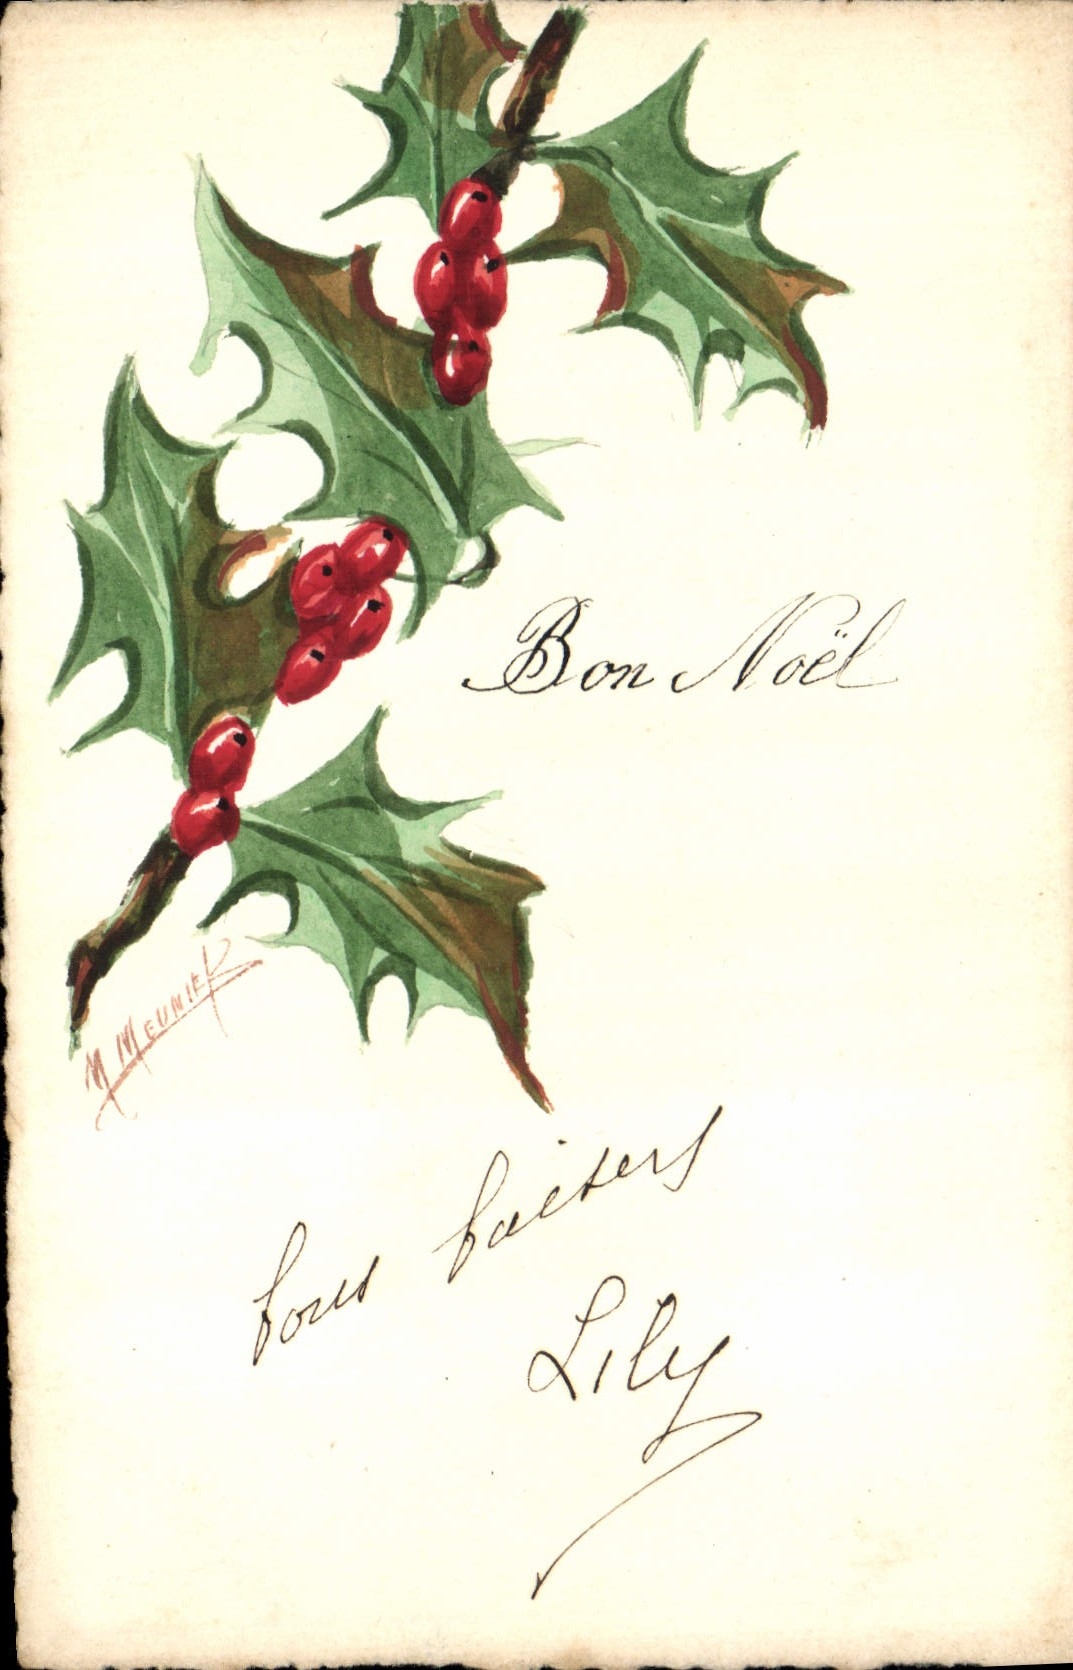 Bon Noël
M MEUNIER
bons baisers
Lily